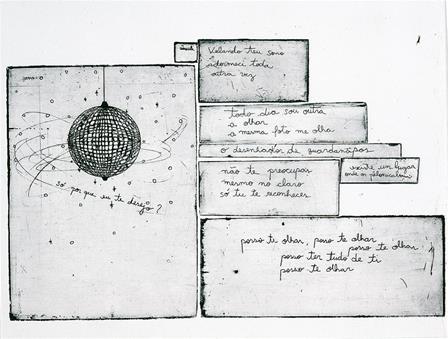 Velando teu sono
adormeci toda
outra vez
todo dia sou outra
a olhar
a mesma foto me olha
o desenhador de guardanapos
existe um lugar
onde os
não te preocupes
mesmo no claro
só tu te reconheces
só por que eu te desejo?
posso te olhar, posso te olhar
posso te olhar
posso ter tudo de ti
posso te olhar